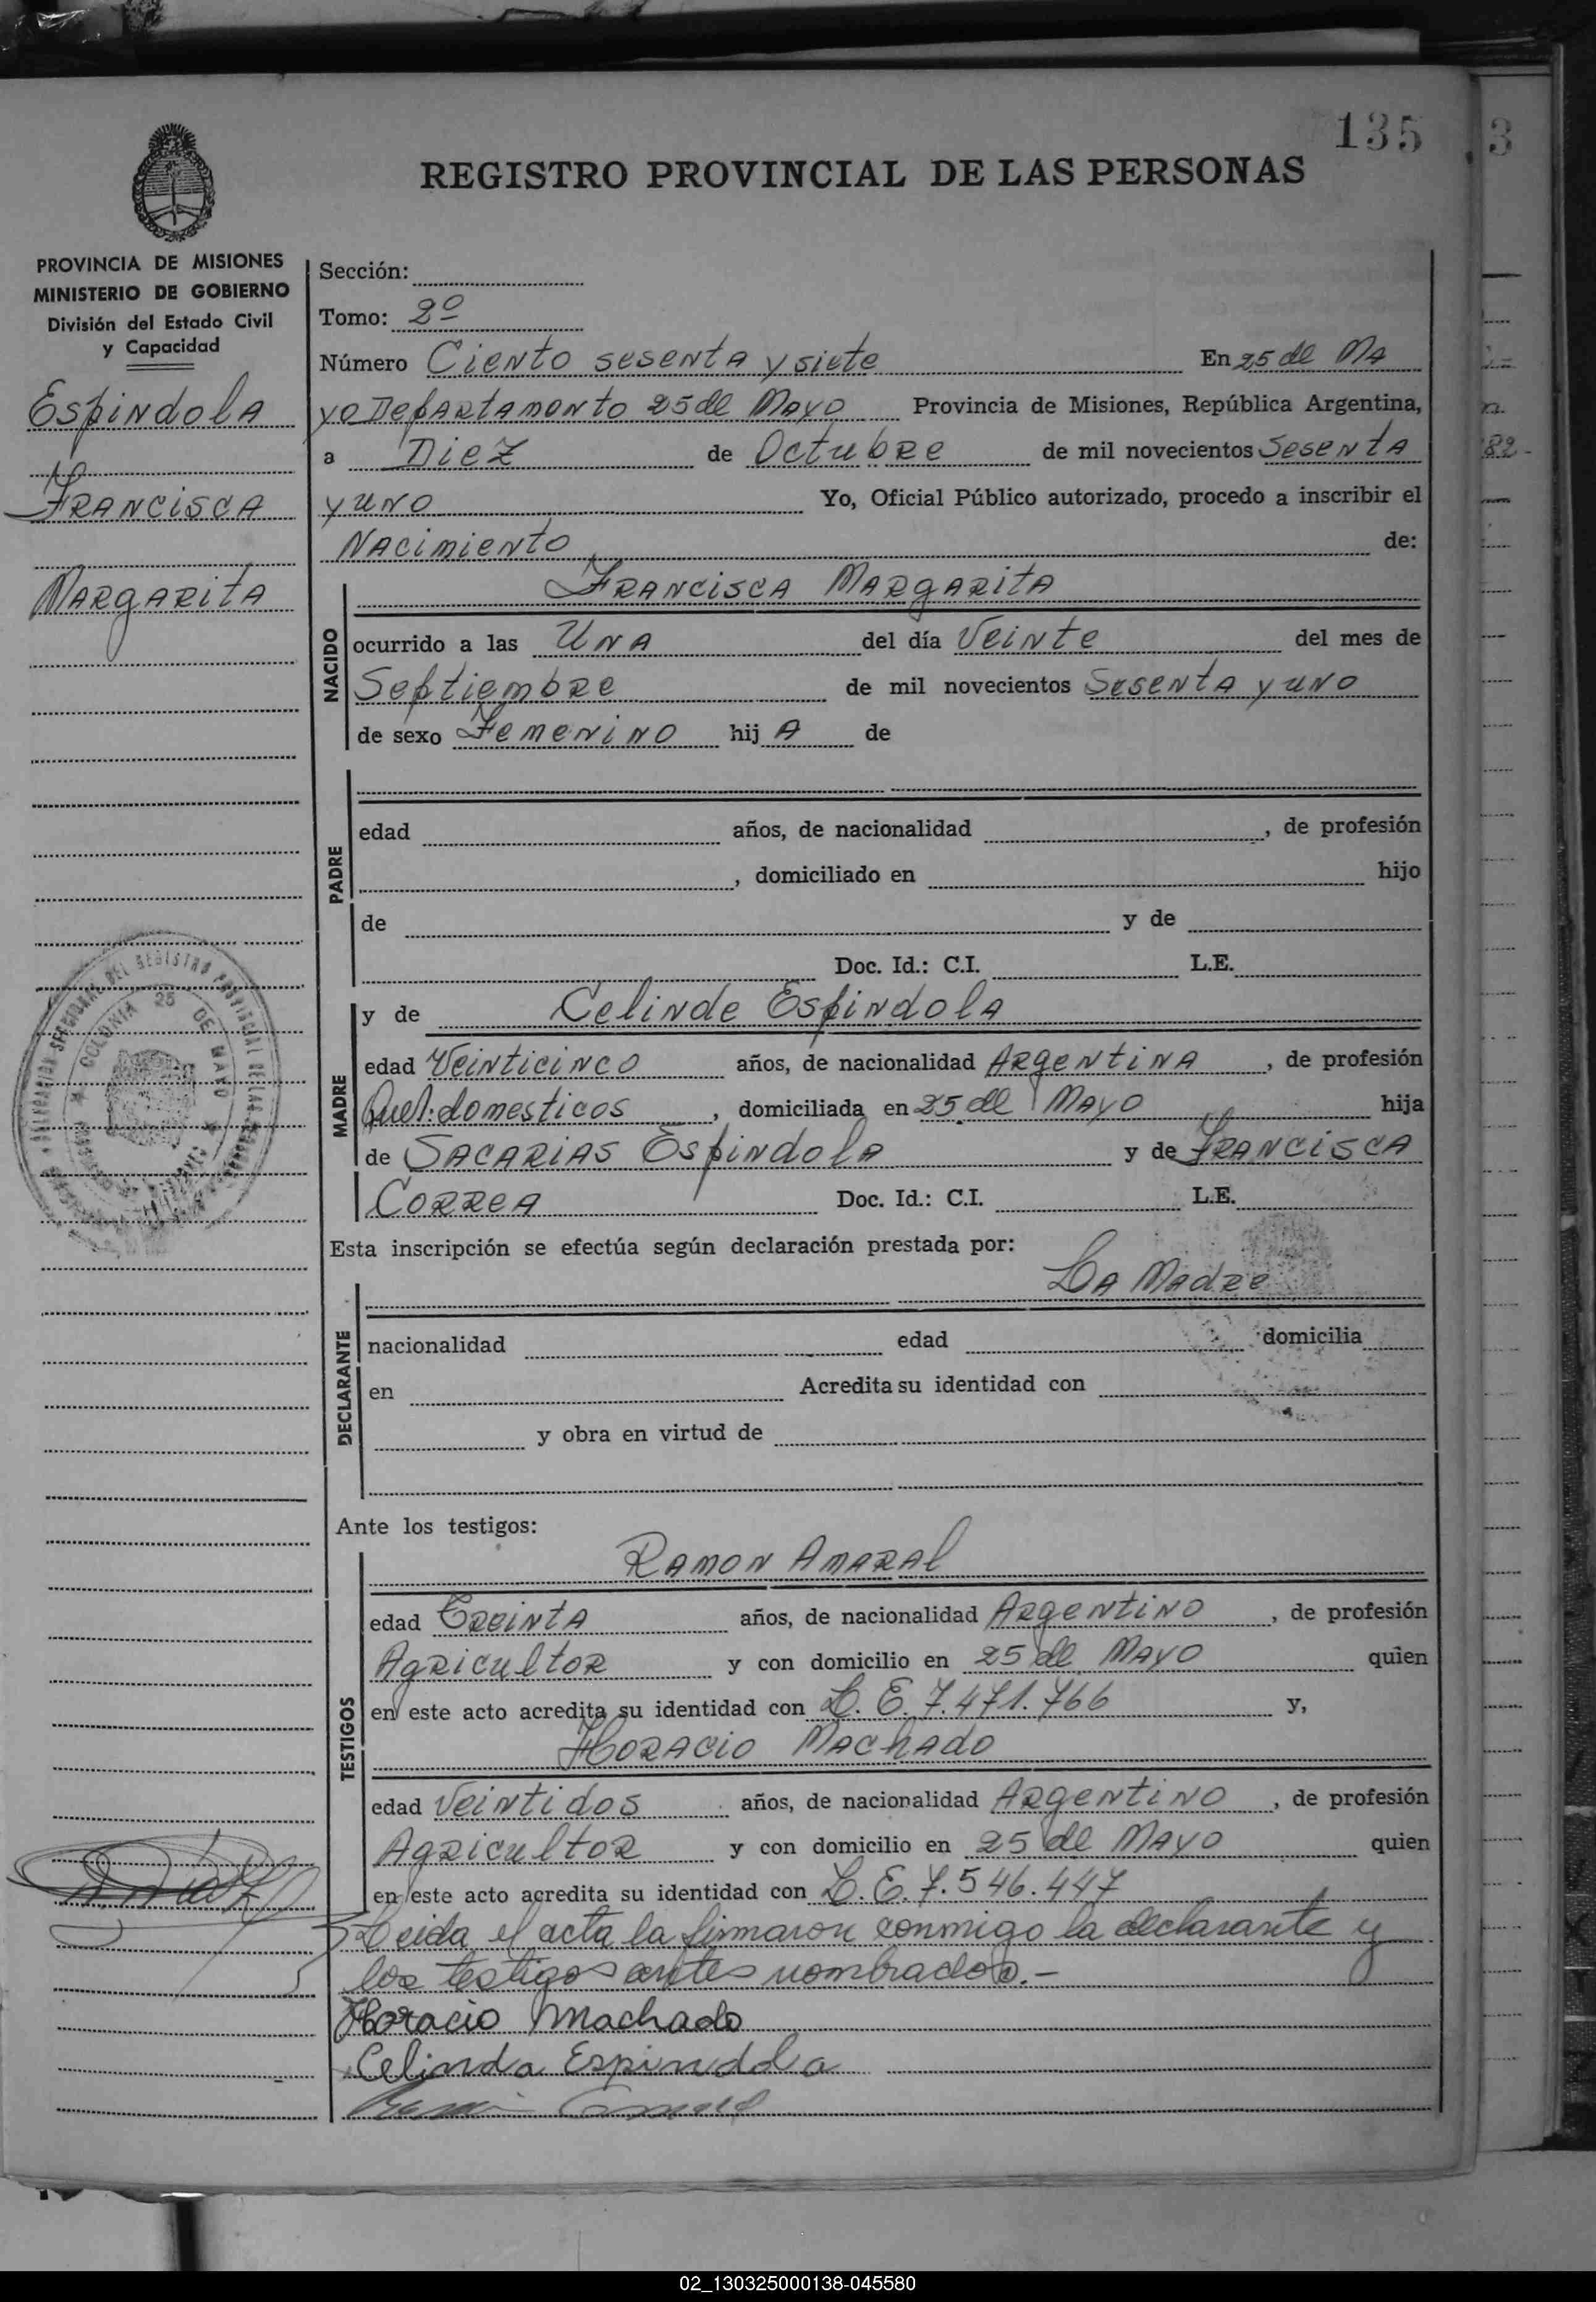 135
3
REGISTRO PROVINCIAL DE LAS PERSONAS
PROVINCIA DE MISIONES
MINISTERIO DE GOBIERNO
División del Estado Civil
y Capacidad
Espindola
Francisca
Margarita
Sección:
Tomo: 2º
Número Ciento sesenta y siete En 25 de Ma
yo Departamento 25 de Mayo Provincia de Misiones, República Argentina,
a Diez de Octubre de mil novecientos Sesenta
y uno Yo, Oficial Público autorizado, procedo a inscribir el
Nacimiento de:
NACIDO
Francisca Margarita
ocurrido a las Una del día Veinte del mes de
Septiembre de mil novecientos Sesenta y uno
de sexo Femenino hij A de
PADRE
edad años, de nacionalidad , de profesión
, domiciliado en hijo
de y de
Doc. Id.: C.I. L.E.
MADRE
y de Celinde Espindola
edad Veinticinco años, de nacionalidad Argentina , de profesión
Quel. domesticos , domiciliada en 25 de Mayo hija
de Sacarias Espindola y de Francisca
Correa Doc. Id.: C.I. L.E.
COLONIA 25 DE MAYO
Esta inscripción se efectúa según declaración prestada por:
La Madre
DECLARANTE
nacionalidad edad domicilia
en Acredita su identidad con
y obra en virtud de
Ante los testigos:
TESTIGOS
Ramon Amaral
edad Treinta años, de nacionalidad Argentino , de profesión
Agricultor y con domicilio en 25 de Mayo quien
en este acto acredita su identidad con L. E. 7.471.766 y,
Horacio Machado
edad Veintidos años, de nacionalidad Argentino , de profesión
Agricultor y con domicilio en 25 de Mayo quien
en este acto acredita su identidad con L. E. 7.546.447
Leida el acta la firmaron conmigo la declarante y
los testigos antes nombrados.-
Horacio Machado
Celinda Espinddla
02_130325000138-045580